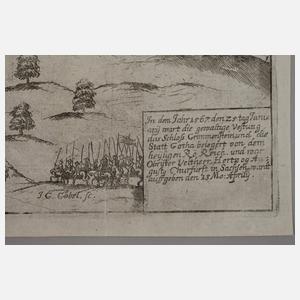 In dem Jahr 1567. den 25 tag Janu
arij wart die gewaltige Vestung
das Schloß Grimmenstein und die
Statt Gotha belegert von dem
heyligen Rö. Reich. und war
Obrister Veltherr Hertz. og Au
gusty Churfürst in Sachsen, wardt
auffgeben den 13 Mo: Aprily.
J. C. Göbel, sc.